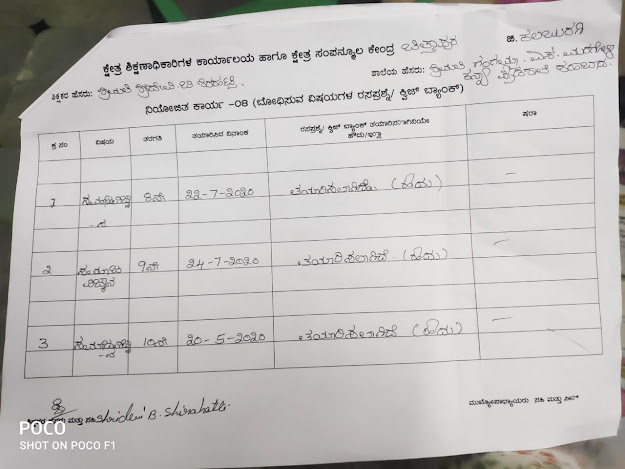 ಕ್ಷೇತ್ರ ಶಿಕ್ಷಣಾಧಿಕಾರಿಗಳ ಕಾರ್ಯಾಲಯ ಹಾಗೂ ಕ್ಷೇತ್ರ ಸಂಪನ್ಮೂಲ ಕೇಂದ್ರ ಚಿತ್ತಾಪುರ ಜಿ. ಕಲಬುರಗಿ
ಶಿಕ್ಷಕರ ಹೆಸರು: ಶ್ರೀಮತಿ ಶ್ರೀದೇವಿ ಬಿ ಶಾಲೆಯ ಹೆಸರು: ಶ್ರೀಮತಿ
ಕನ್ಯಾ ಪ್ರೌಢಶಾಲೆ
ನಿಯೋಜಿತ ಕಾರ್ಯ -08 (ಬೋಧಿಸುವ ವಿಷಯಗಳ ರಸಪ್ರಶ್ನೆ/ ಕ್ವಿಜ್ ಬ್ಯಾಂಕ್)
ಕ್ರ ಸಂ ವಿಷಯ ತರಗತಿ ತಯಾರಿಸಿದ ದಿನಾಂಕ ರಸಪ್ರಶ್ನೆ/ ಕ್ವಿಜ್ ಬ್ಯಾಂಕ್ ತಯಾರಿಸಲಾಗಿದೆಯೇ ಷರಾ
ಹೌದು/ಇಲ್ಲ
1 ಸಮಾಜವಿಜ್ಞಾ 8ನೇ 22-7-2020 ತಯಾರಿಸಲಾಗಿದೆ. (ಹೌದು) -
-ನ
2 ಸಮಾಜ 9ನೇ 24-7-2020 ತಯಾರಿಸಲಾಗಿದೆ. (ಹೌದು) -
ವಿಜ್ಞಾನ
3 ಸಮಾಜವಿಜ್ಞಾ 10ನೇ 20-5-2020 ತಯಾರಿಸಲಾಗಿದೆ (ಹೌದು) -
-ನ
ಮತ್ತು ಸಹಿ Shridevi B. Shirahatti ಮುಖ್ಯೋಪಾಧ್ಯಾಯರು ಸಹಿ ಮತ್ತು ಸೀಲ್
POCO
SHOT ON POCO F1